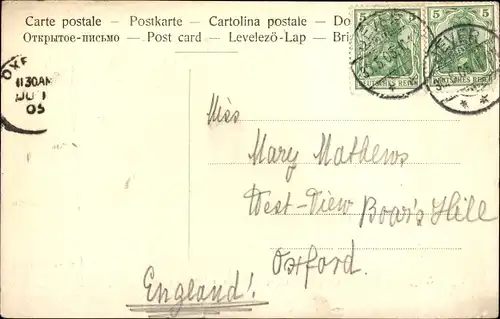 Carte postale — Postkarte — Cartolina postale — Do
Открытое-письмо — Post card — Levelező-Lap — Bri
5 5
DEUTSCHES REICH
OXF
1130AM
JU 1
05
Miss
Mary Mathews
West-View Boar's Hill
Oxford.
England!